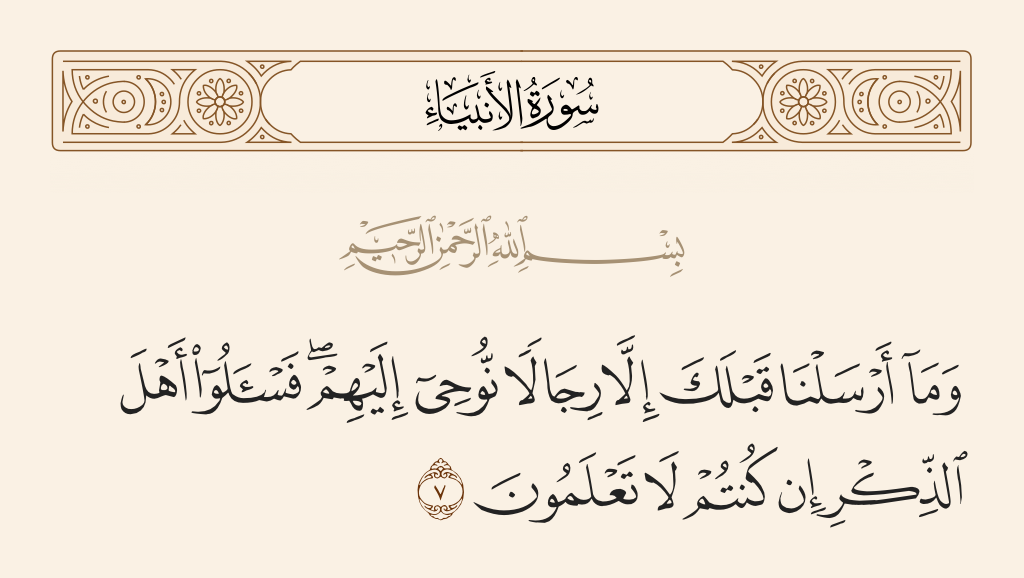 سُورَةُ الأَنبِيَاءِ
بِسْمِ ٱللَّهِ ٱلرَّحْمَٰنِ ٱلرَّحِيمِ
وَمَآ أَرْسَلْنَا قَبْلَكَ إِلَّا رِجَالًا نُّوحِىٓ إِلَيْهِمْ ۖ فَسْـَٔلُوٓا۟ أَهْلَ
ٱلذِّكْرِ إِن كُنتُمْ لَا تَعْلَمُونَ ٧